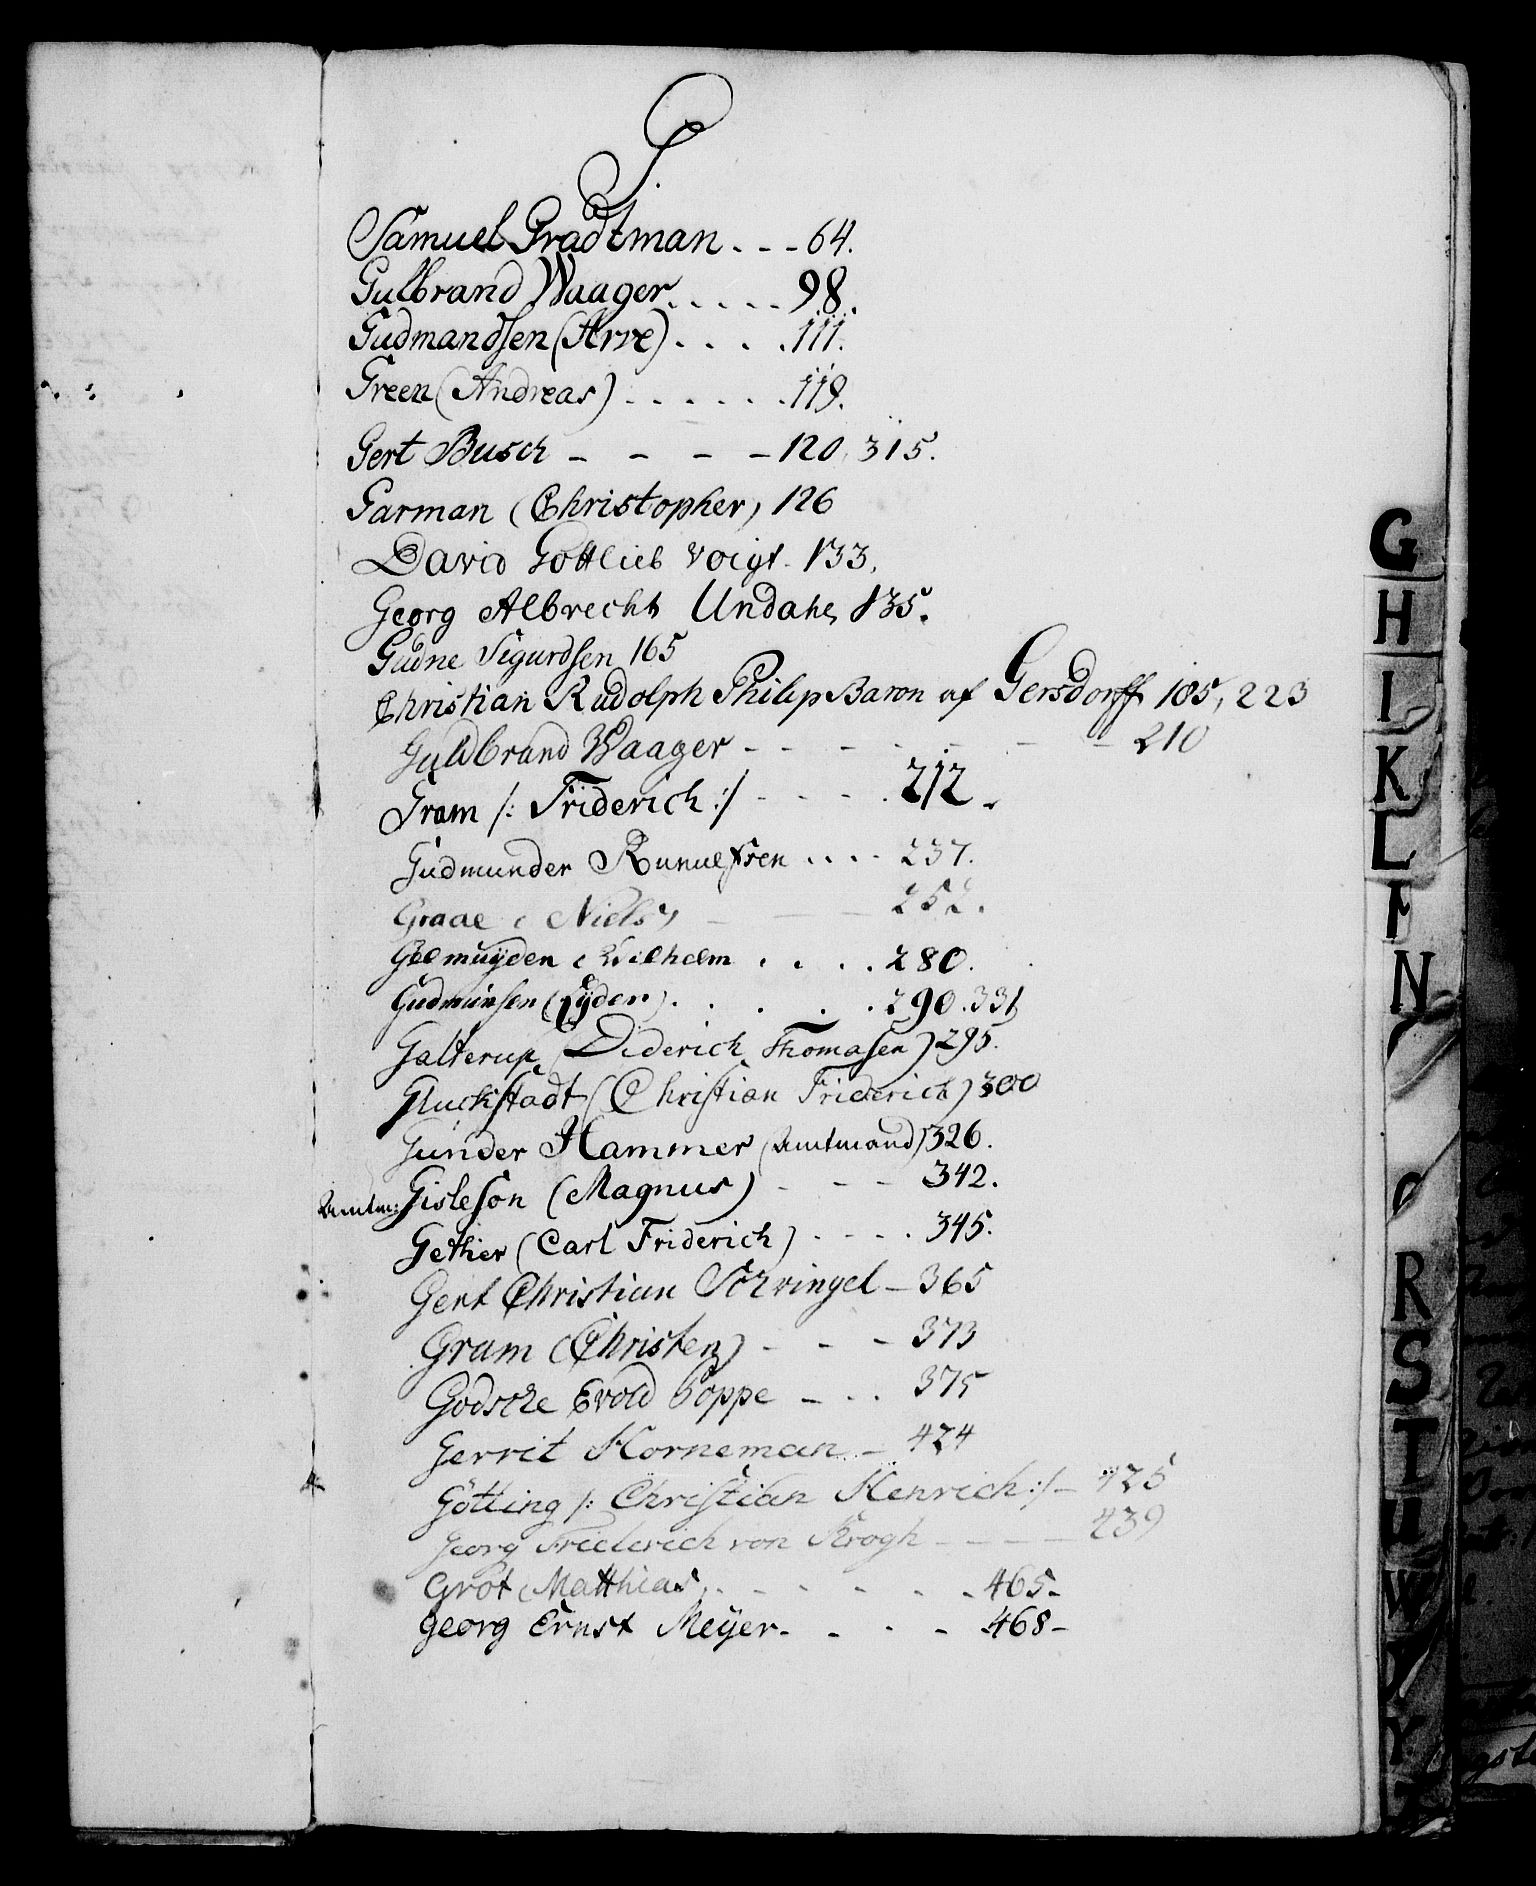 G.
Samuel Gradtman . . . 64.
Gulbrand Waager . . . . . 98.
Gudmandsen (Arve) . . . . 111.
Green (Andreas) . . . . . . 119.
Gert Busch – – – – 120, 315.
Garman (Christopher) 126
David Gottlieb Voigt. 133,
Georg Albrecht 135.
Gudne Sigurdsen 165
Christian Rudolph Philip Baron af Gersdorff 185, 223
Guldbrand Waager – – – – – – – 210
Gram /: Friderich :/ – – – . 212.
Gudmunder . . . . 237.
Graae (Niels) – – – 252.
Gelmuyden (Wilhelm . . . . 280.
Gudmunsen (Eyder) . . . . . 290. 331
Galterup (Diderich Thomasen) 295.
Gluckstadt (Christian Friderich) 300
Gunder Hammer (Amtmand) 326.
Amtm: Gisleson (Magnus) – – – 342.
Gether (Carl Friderich) . . . . 345.
Gert Christian – 365
Gram (Christen) – – – 373
Godsche Evold Poppe – . . 375
Gerrit Horneman – 424
Götting /: Christian Henrich :/ – 425
Georg Friederich von Krogh – – – – 439
Grot (Matthias) . – – – – – . 465.
Georg Ernst Meyer – . . . – 468 –
G
H
I
K
L
N
R
S
T
U
W
Y